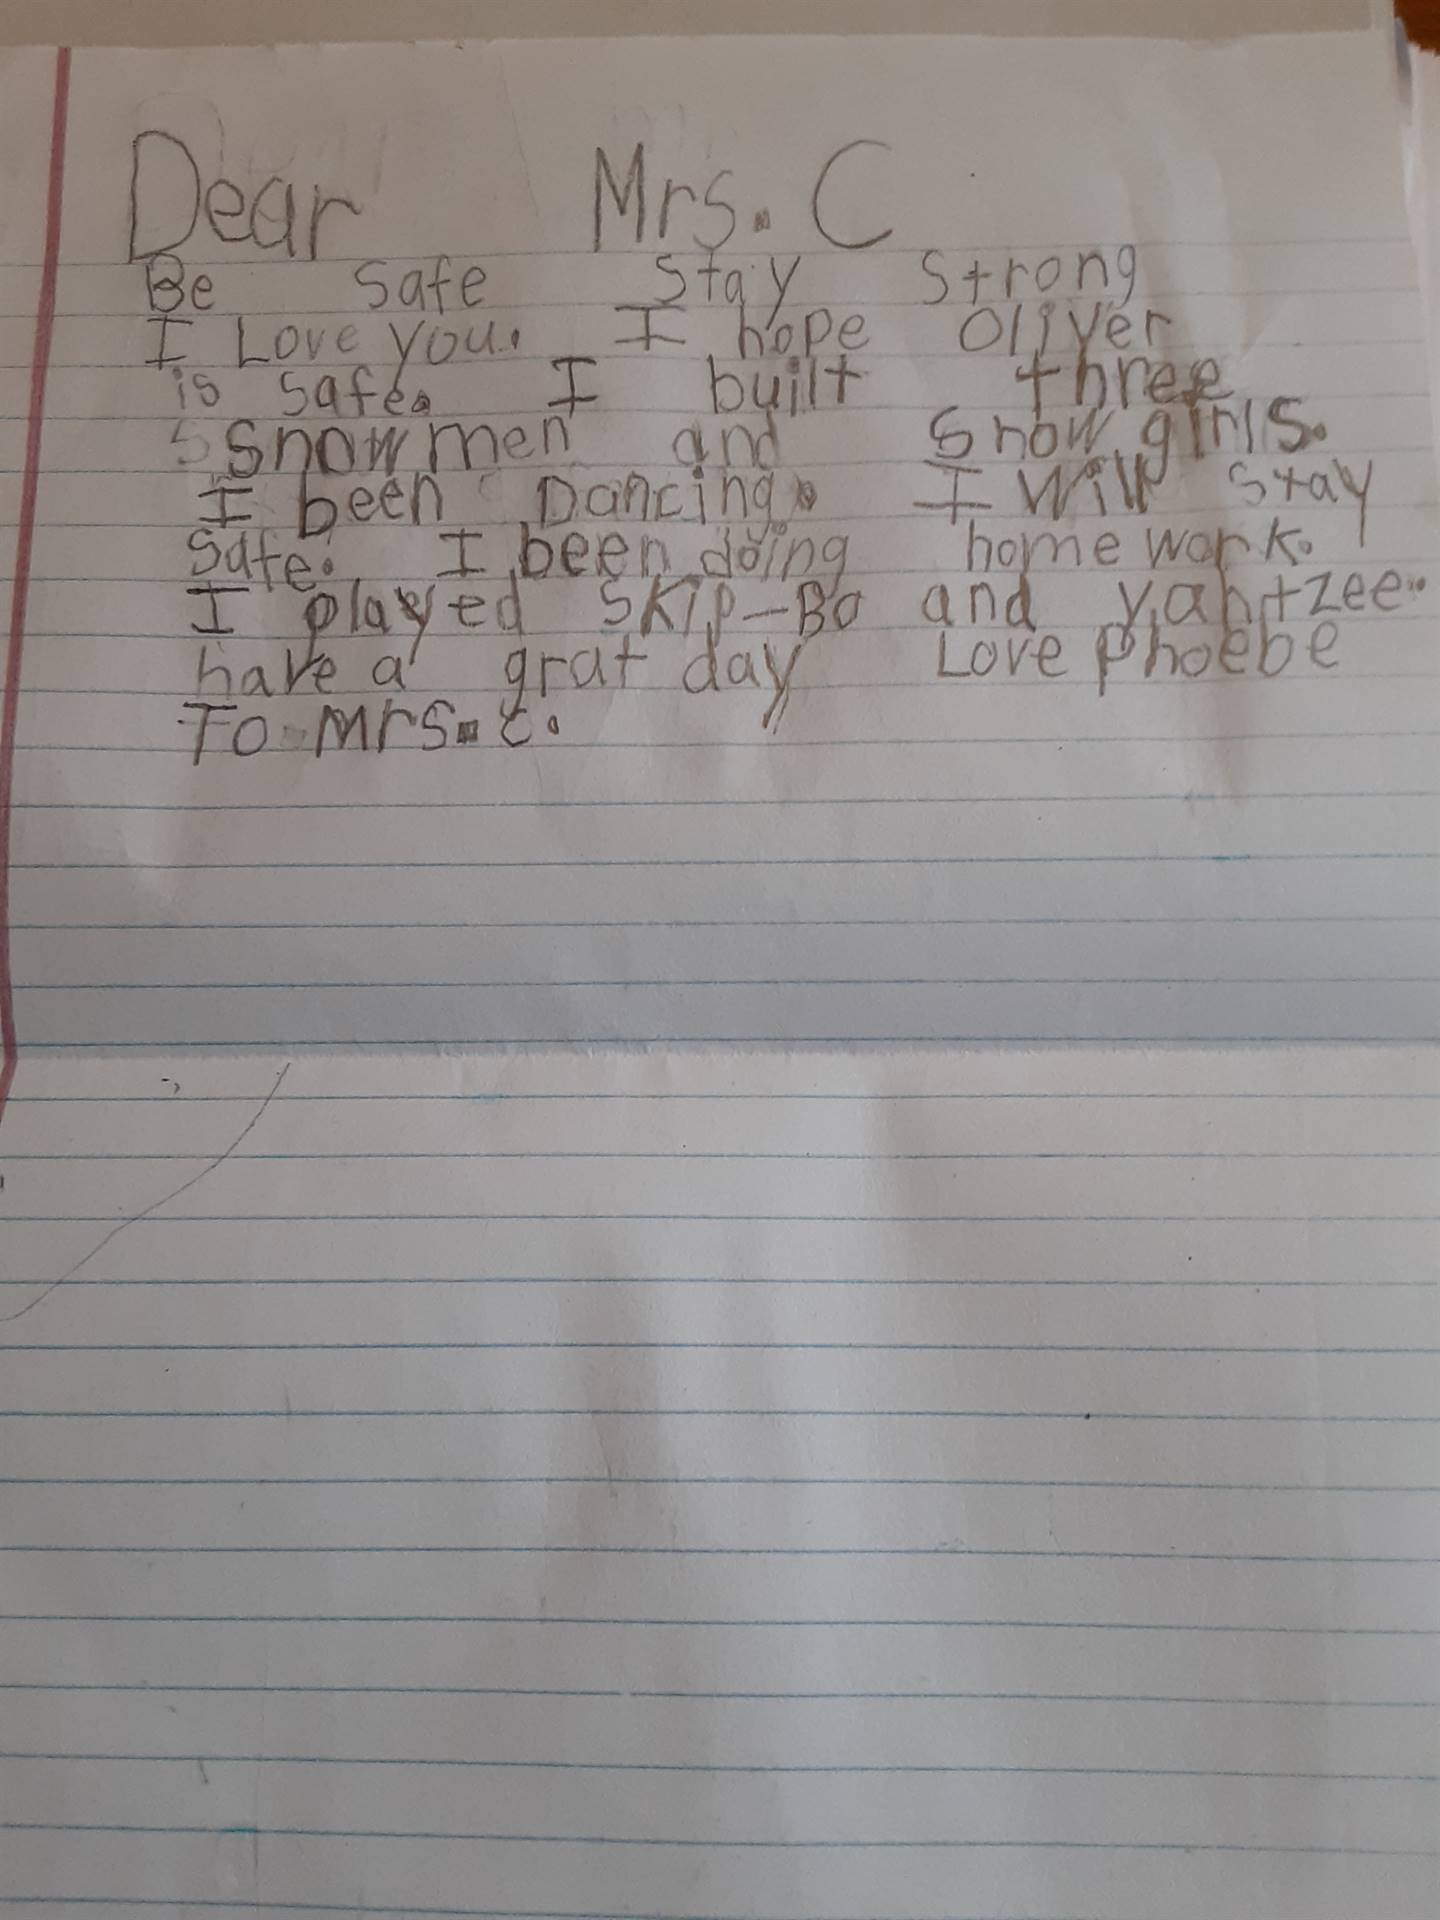 Dear Mrs. C
Be safe stay strong
I Love you. I hope Oliver
is safe. I built three
snowmen and snow girls.
I been Dancing. I Will stay
safe. I been doing home work.
I played SKip-Bo and yahtzee.
have a grat day Love Phoebe
To Mrs. C.